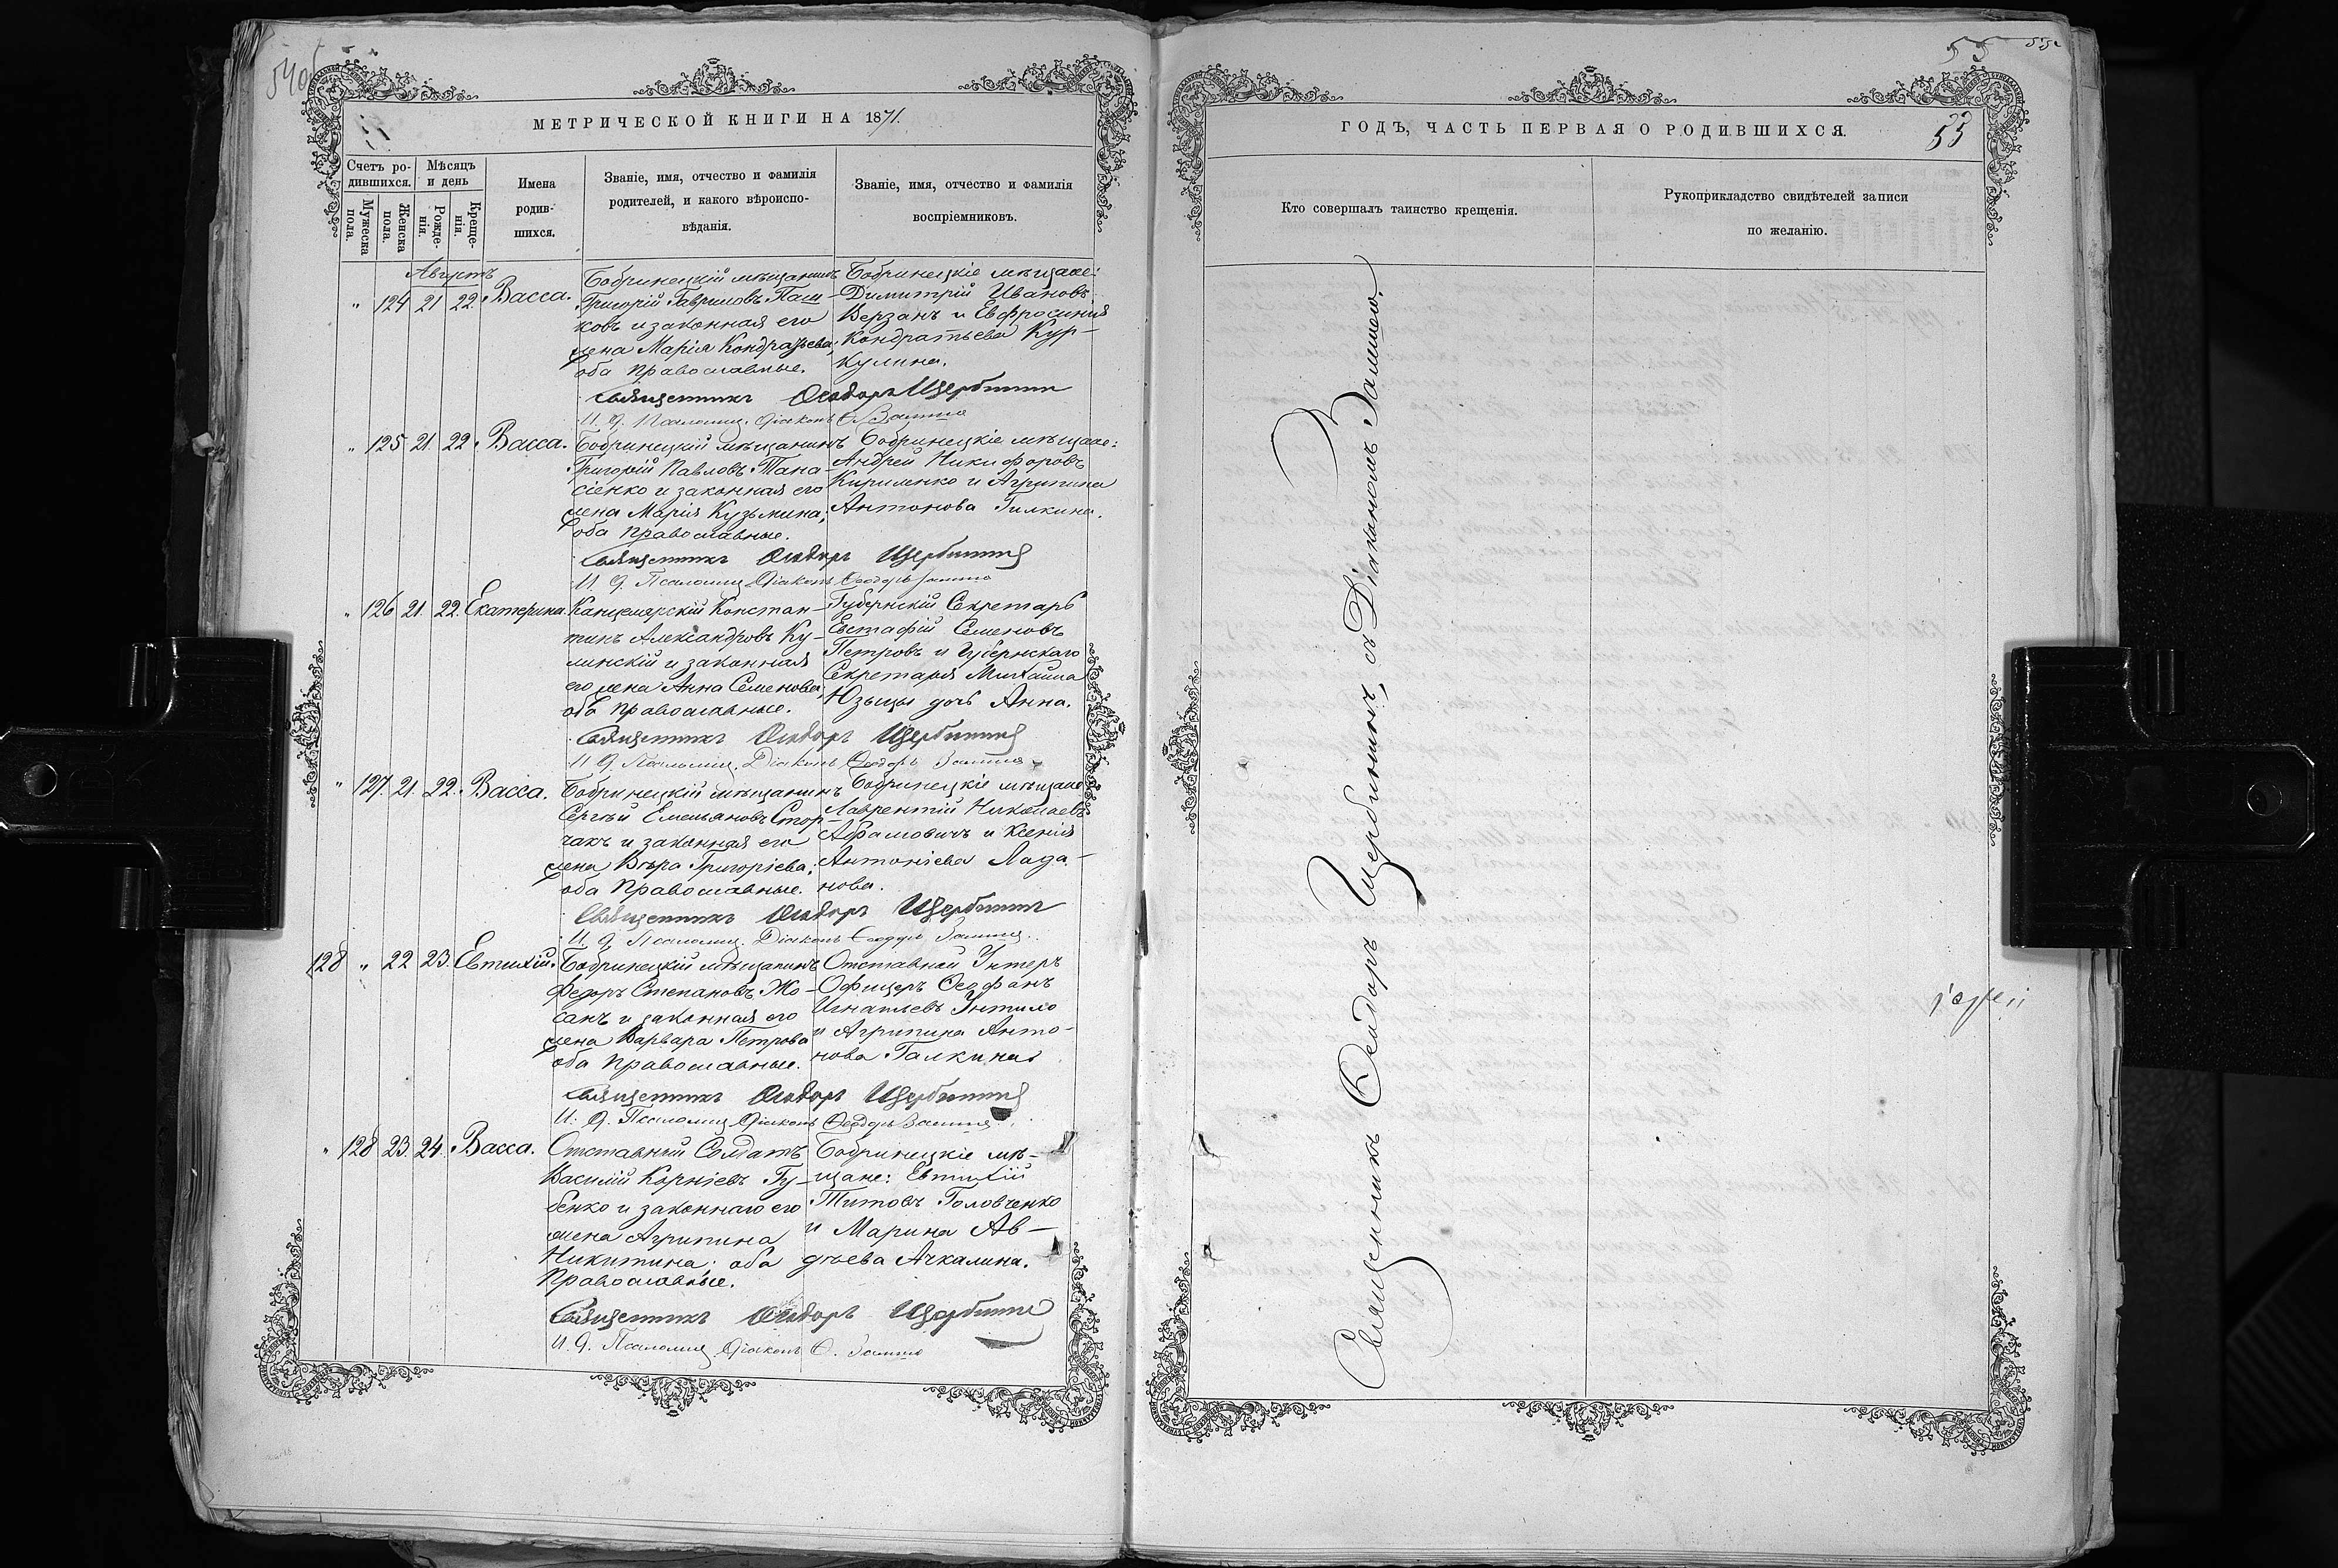 МЕТРИЧЕСКОЙ КНИГИ НА 1871.
Счетъ родившихся.
Мужеска пола.
Женска пола.
Мѣсяцъ и день
Рожденія.
Крещенія.
Имена родившихся.
Званіе, имя, отчество и фамилія
родителей, и какого вѣроиспо-
вѣданія.
Званіе, имя, отчество и фамилія
воспріемниковъ.
Августъ
" 124 21 22. Васса.
Бобринецкій мѣщанинъ
Григорій Гавриловъ Паш-
ковъ и законная его
жена Марія Кондратьева;
оба православные.
Бобринецкіе мѣщане:
Димитрій Ивановъ
Верзанъ и Евфросинія
Кондратьева Кур-
кулина.
Священникъ Ѳеодоръ Щербининъ
И. д. Псаломщ. Діаконъ Ѳ. Замша
" 125 21 22. Васса.
Бобринецкій мѣщанинъ
Григорій Павловъ Тана-
сіенко и законная его
жена Марія Кузьмина;
оба православные.
Бобринецкіе мѣщане:
Андрей Никифоровъ
Кириленко и Агрипина
Антонова Галкина.
Священникъ Ѳеодоръ Щербининъ
И. д. Псаломщ. Діаконъ Ѳеодоръ Замша
" 126 21. 22. Екатерина.
Канцелярскій Констан-
тинъ Александровъ Ку-
линскій и законная
его жена Анна Семенова;
оба православные.
Губернскій Секретарь
Евстафій Семеновъ
Петровъ и Губернскаго
Секретаря Михаила
Юзьщы дочь Анна.
Священникъ Ѳеодоръ Щербининъ
И. д. Псаломщ. Діаконъ Ѳеодоръ Замша
" 127. 21. 22. Васса.
Бобринецкій мѣщанинъ
Сергѣй Емельяновъ Стор-
чакъ и законная его
жена Вѣра Григоріева;
оба православные.
Бобринецкіе мѣщане
Лаврентій Николаевъ
Абрамовичъ и Ксенія
Антоніева Лада-
нова.
Священникъ Ѳеодоръ Щербининъ
И. д. Псаломщ. Діаконъ Ѳеодоръ Замша
128 " 22 23. Евтихій.
Бобринецкій мѣщанинъ
Федоръ Степановъ Жо-
санъ и законная его
жена Варвара Петрова
оба православные.
Отставной Унтеръ
Офицеръ Ѳеофанъ
Игнатьевъ Унтило
и Агрипина Анто-
нова Галкина
Священникъ Ѳеодоръ Щербининъ
И. д. Псаломщ. Діаконъ Ѳеодоръ Замша
" 128 23. 24. Васса.
Отставный Солдатъ
Василій Корніевъ Гу-
бенко и законнаго его
жена Агрипина
Никитина; оба
православные.
Бобринецкіе мѣ-
щане: Евтихій
Титовъ Головченко
и Марина Ав-
дѣева Ачкалина.
Священникъ Ѳеодоръ Щербининъ
И. д. Псаломщ. Діаконъ Ѳ. Замша
55
ГОДЪ, ЧАСТЬ ПЕРВАЯ О РОДИВШИХСЯ.
55
Кто совершалъ таинство крещенія.
Рукоприкладство свидѣтелей записи
по желанію.
Священникъ Ѳеодоръ Щербининъ, съ Діакономъ Замшею.